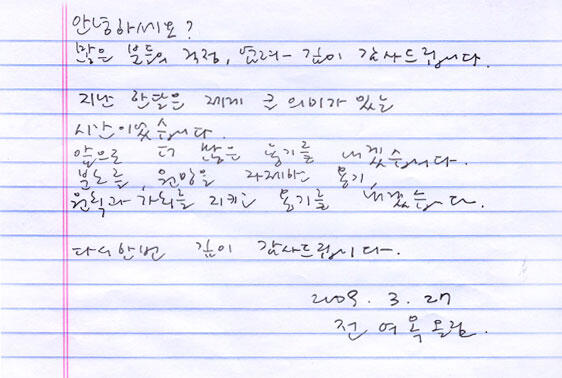 안녕하세요?
많은 분들의 걱정, 염려- 깊이 감사드립니다.
지난 한달은 제게 큰 의미가 있는
시간이었습니다.
앞으로 더 많은 용기를 내겠습니다.
분노를, 원망을 자제하는 용기,
원칙과 가치를 지키는 용기를 내겠습니다.
다시한번 깊이 감사드립니다.
2009. 3. 27
전여옥 올림.